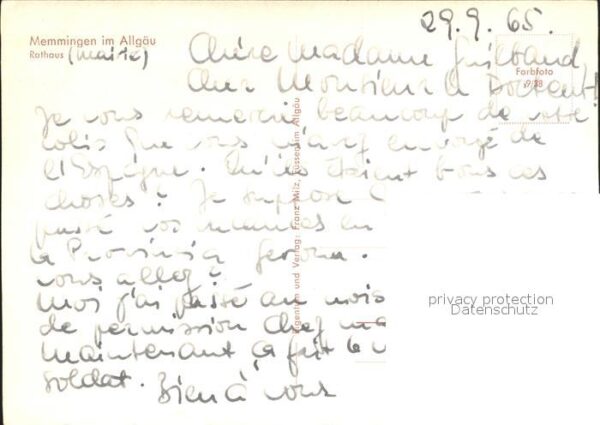 29.9.65.
Memmingen im Allgäu
Rathaus (Mairie)
Chère Madame
Cher Monsieur le Docteur!
Farbfoto
9/38
Je vous remercie beaucoup de votre
colis que vous m'avez envoyé de
l'Espagne. Qu'ils étaient bons ces
choses! Je suppose
passé vos vacances en
la Provincia Gerona.
vous allez?
Moi j'ai passé un mois
de permission chez ma
Maintenant ça fait le
soldat. Bien à vous
Eigentum und Verlag: Franz Milz, Füssen im Allgäu
privacy protection
Datenschutz